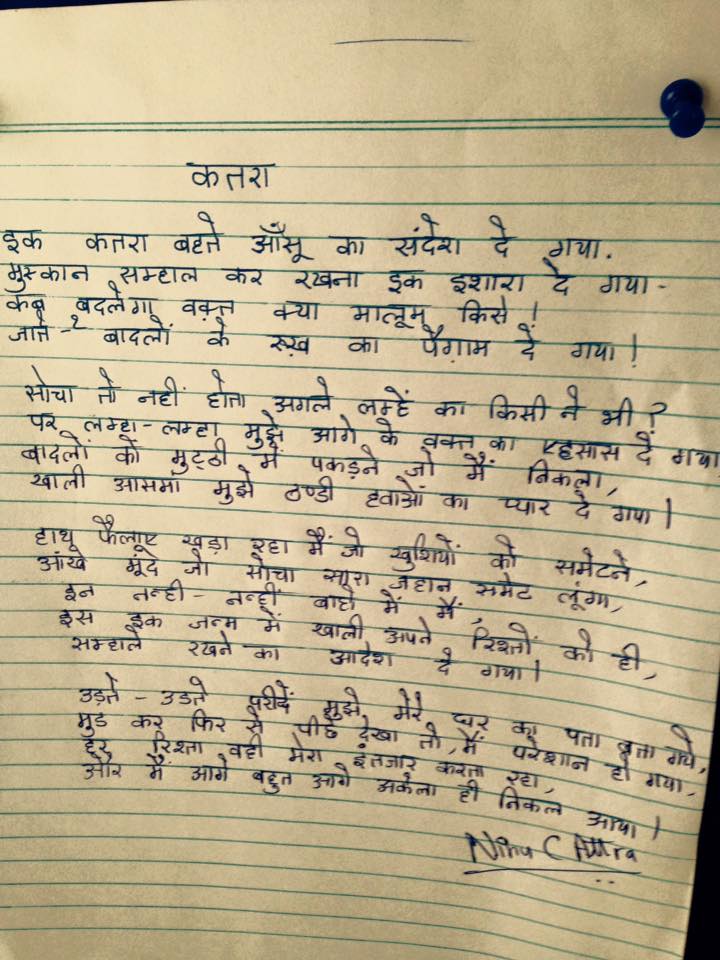 कतरा
इक कतरा बहते आँसू का संदेश दे गया.
मुस्कान सम्हाल कर रखना इक इशारा दे गया -
कब बदलेगा वक़्त क्या मालूम किसे!
जाते-२ बादलों के रूख़ का पैग़ाम दे गया!
सोचा तो नहीं होता अगले लम्हें का किसी ने भी?
पर लम्हा-लम्हा मुझे आगे के वक्त का एहसास दे गया
बादलों को मुट्ठी में पकड़ने जो मैं निकला,
खाली आसमाँ मुझे ठण्डी हवाओं का प्यार दे गया।
हाथ फैलाए खड़ा रहा मैं जो खुशियों को समेटने,
आंखे मूंदे जो सोचा सारा जहान समेट लूंगा,
इन नन्ही-नन्हीं बाहों में मैं,
इस इक जन्म में खाली अपने रिश्तों को ही,
सम्हाले रखने का आदेश दे गया।
उड़ते-उडते परीदें मुझे मेरे घर का पता बता गये,
मुड कर फिर से पीछे देखा तो, मैं परेशान हो गया,
हर रिश्ता वही मेरा इंतजार करता रहा,
और मैं आगे बहुत आगे अकेला ही निकल आया।